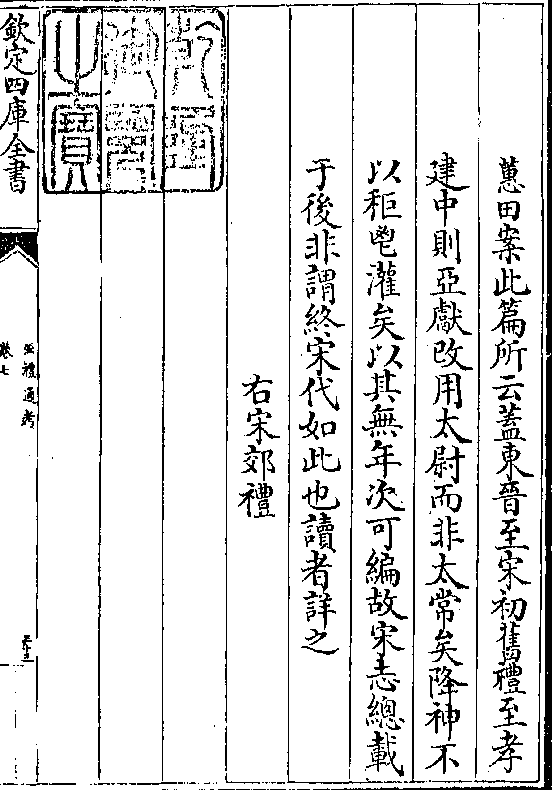 蕙田案此篇所云蓋東晉至宋初舊禮至孝
建中則亞獻改用太尉而非太常矣降神不
以秬鬯灌矣以其無年次可編故宋志總載
于後非謂終宋代如此也讀者詳之
右宋郊禮
乾隆
御覽
之寶
欽定四庫全書
五禮通考
卷七